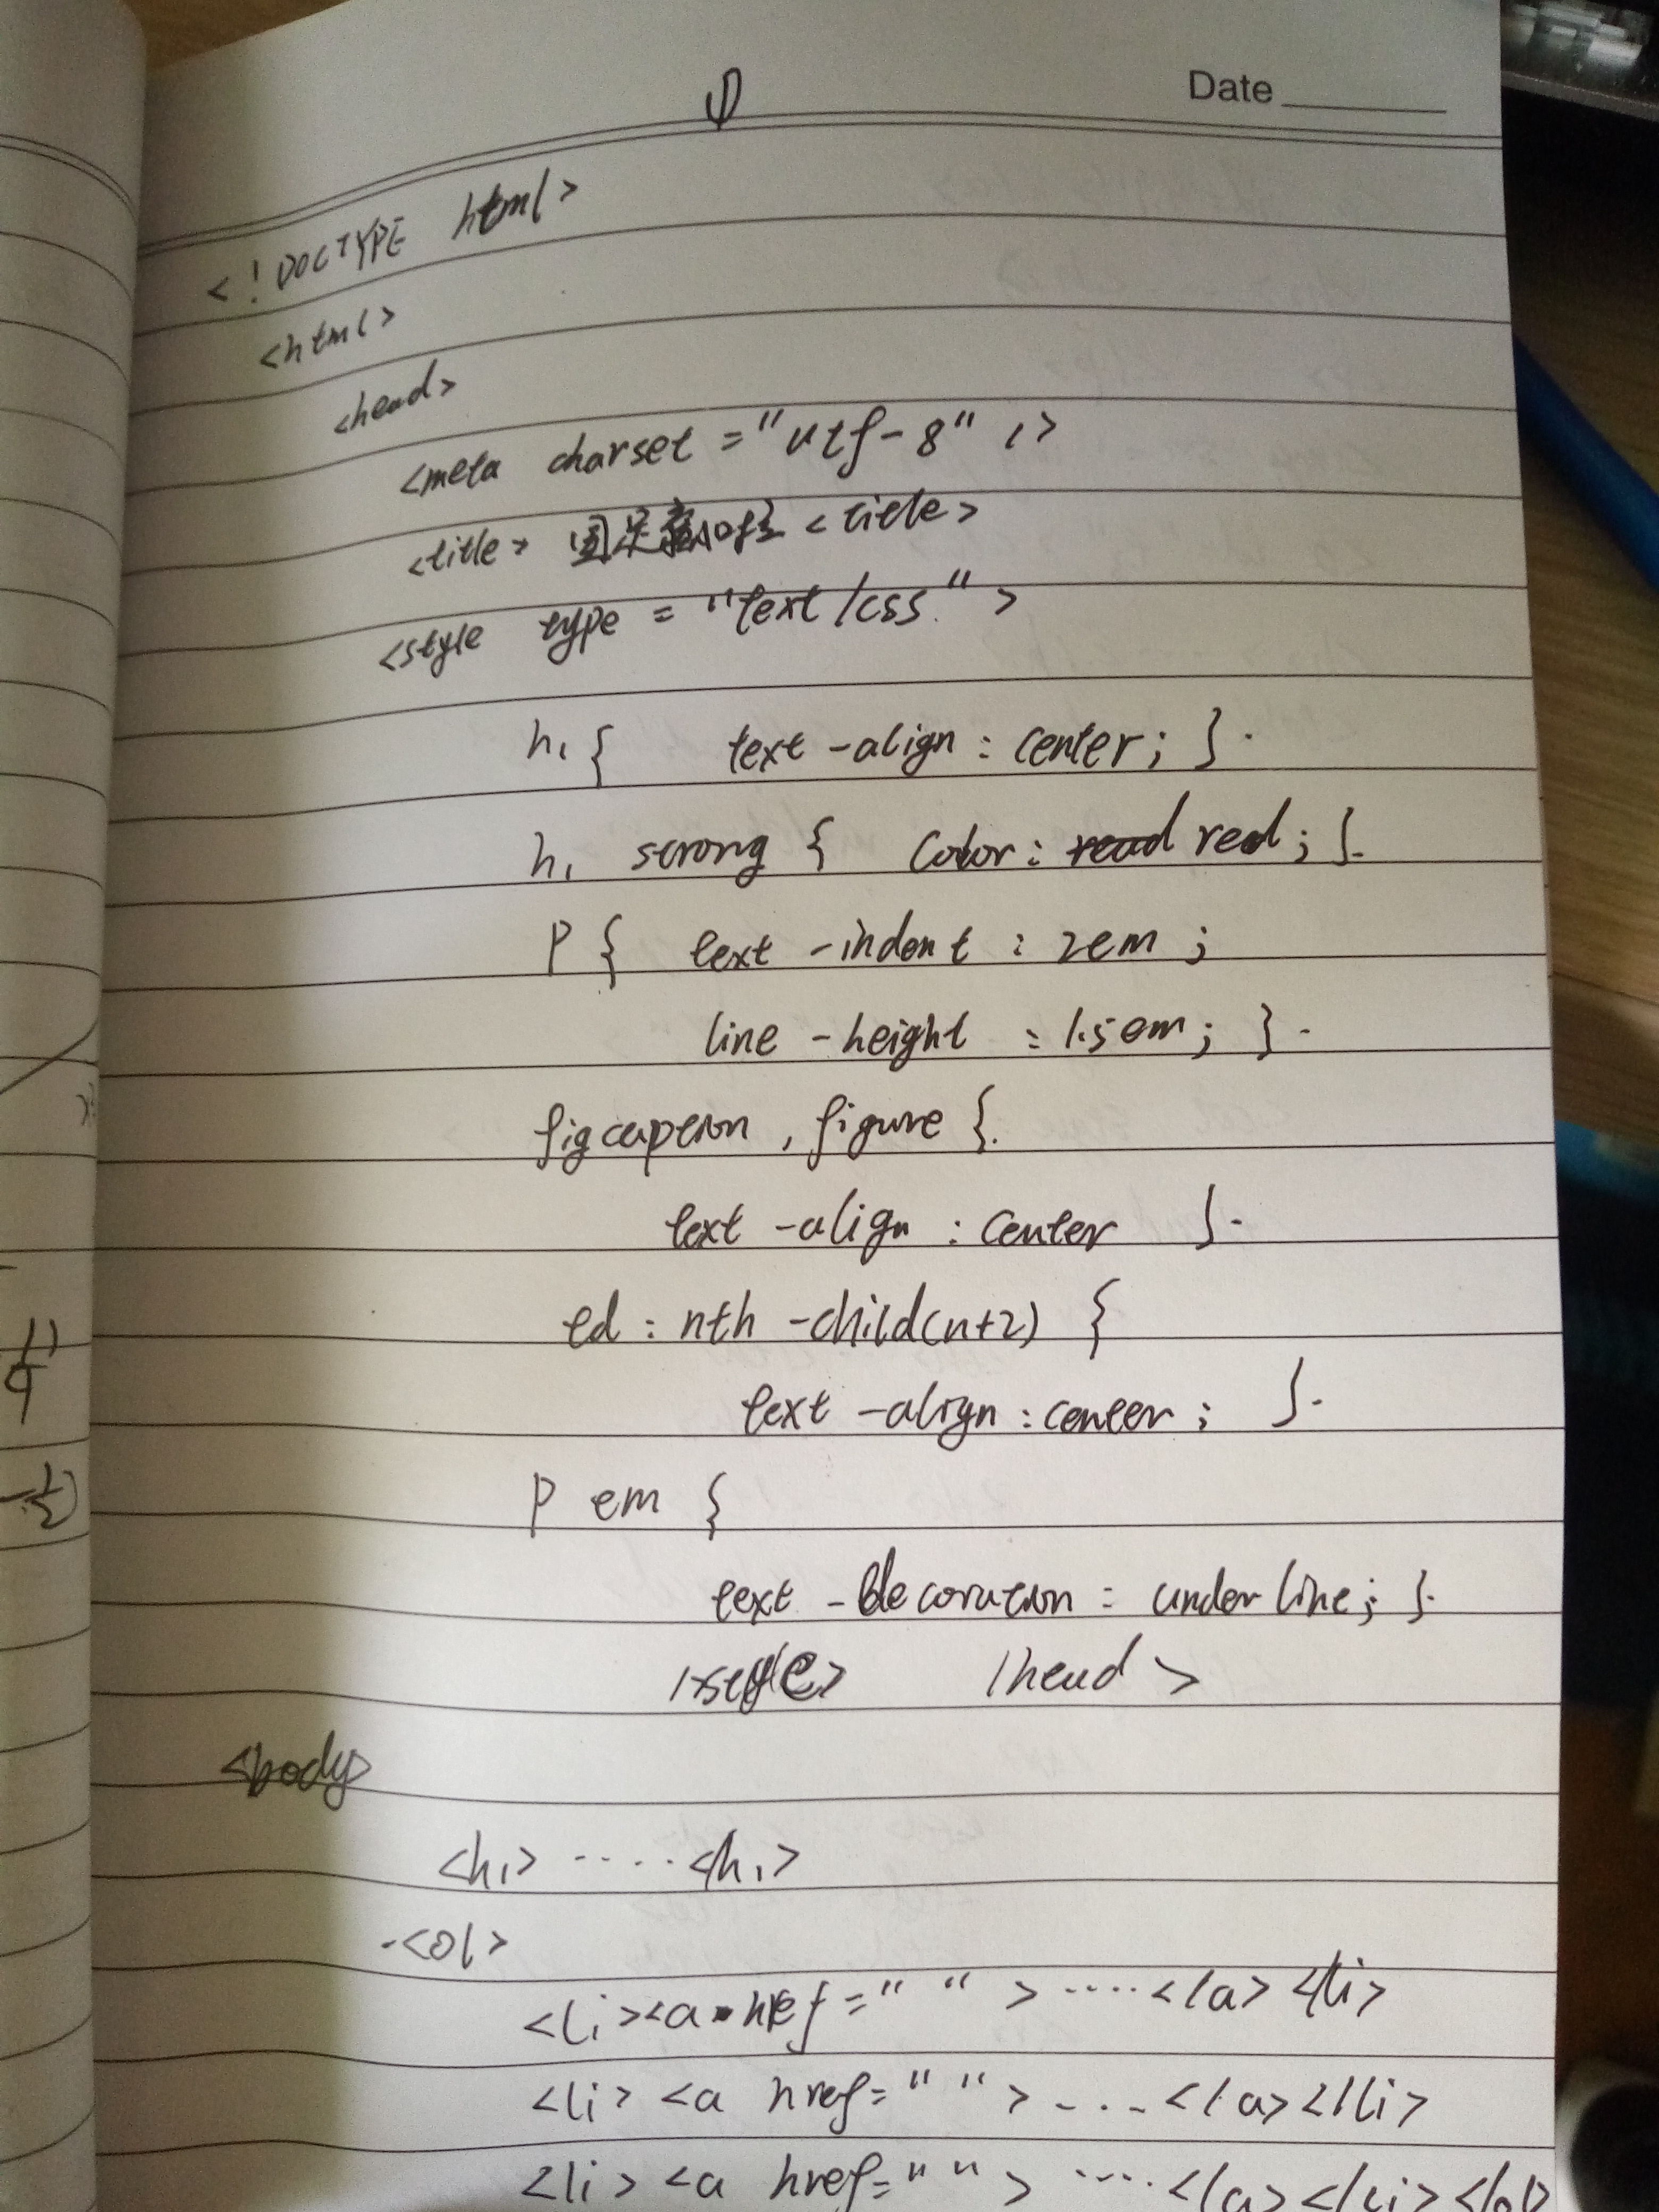 Date
<!DOCTYPE html>
<html>
<head>
<meta charset="utf-8" />
<title> <title>
<style type="text/css">
h1{ text-align:center; }
h1 strong { color: read red; }
p { text-indent: 2em;
line-height: 1.5em; }
figcaption, figure {
text-align: center }
td:nth-child(n+2) {
text-align:center; }
p em {
text-decoration: underline; }
/style> /head>
<body>
<h1> ···· <h1>
<ol>
<li><a href=" "> ···· </a></li>
<li><a href=" "> ... </a></li>
<li><a href=" "> ···· </a></li></ol>